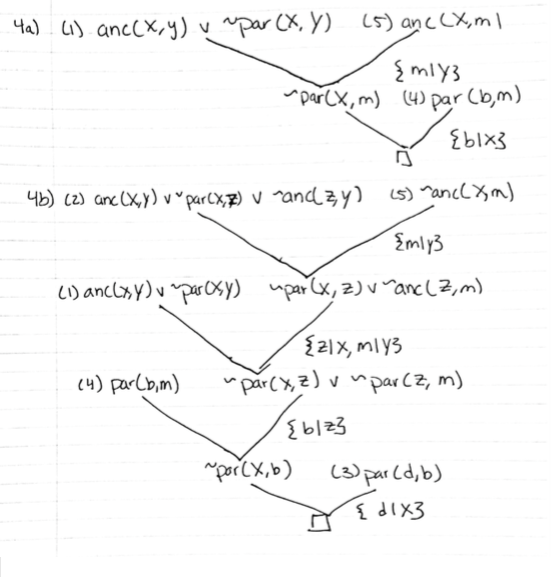 4a) (1) anc(X,y) v ~par(X,Y) (5) anc(X,m)
{m/y}
~par(X,m) (4) par(b,m)
{b/x}
4b) (2) anc(X,Y) v ~par(X,Z) v ~anc(Z,Y) (5) ~anc(X,m)
{m/y}
(1) anc(X,Y) v ~par(X,Y) ~par(X,Z) v ~anc(Z,m)
{z/x, m/y}
(4) par(b,m) ~par(X,Z) v ~par(Z,m)
{b/z}
~par(X,b) (3) par(d,b)
{d/x}